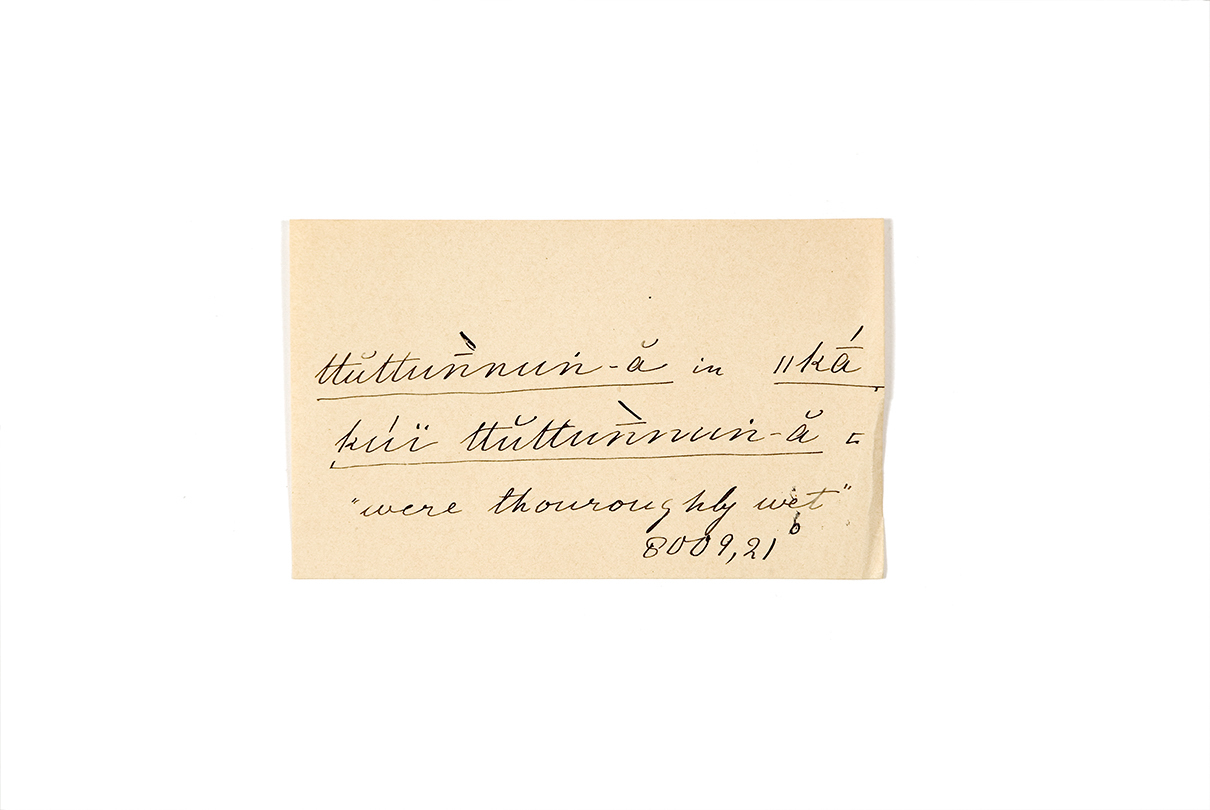 ttŭttun̄̀nuṅ-ă in ǁkā́
kúï ttŭttun̄̀nuṅ-ă =
"were thouroughly wet"
8009,21 b